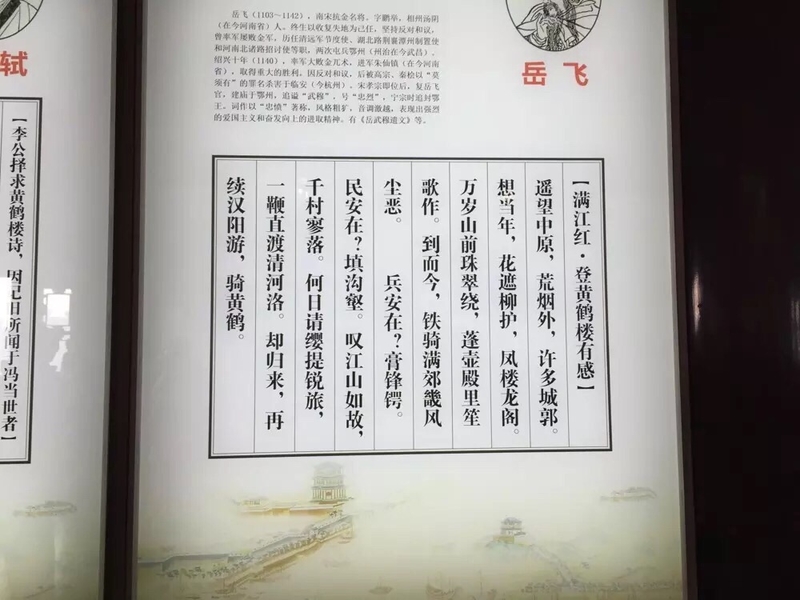 岳飞（1103～1142），南宋抗金名将，字鹏举，相州汤阴
（在今河南省）人。终生以收复失地为己任，坚持反对和议，
曾率军屡败金军。历任清远军节度使、湖北路荆襄潭州制置使
和河南北诸路招讨使等职，两次屯兵鄂州（州治在今武昌）。
绍兴十年（1140），率军大败金兀术，进军朱仙镇（在今河南
省），取得重大的胜利。因反对和议，后被高宗、秦桧以“莫
须有”的罪名杀害于临安（今杭州）。宋孝宗即位后，复岳飞
官，建庙于鄂州，追谥“武穆”，号“忠烈”，宁宗时追封鄂
王。词作以“忠愤”著称，风格粗犷，音调激越，表现出强烈
的爱国主义和奋发向上的进取精神。有《岳武穆遗文》等。
岳飞
【满江红·登黄鹤楼有感】
遥望中原，荒烟外，许多城郭。
想当年，花遮柳护，凤楼龙阁。
万岁山前珠翠绕，蓬壶殿里笙
歌作。到而今，铁骑满郊畿风
尘恶。 兵安在？膏锋锷。
民安在？填沟壑。叹江山如故，
千村寥落。何日请缨提锐旅，
一鞭直渡清河洛。却归来，再
续汉阳游，骑黄鹤。
轼
【李公择求黄鹤楼诗，因记旧所闻于冯当世者】